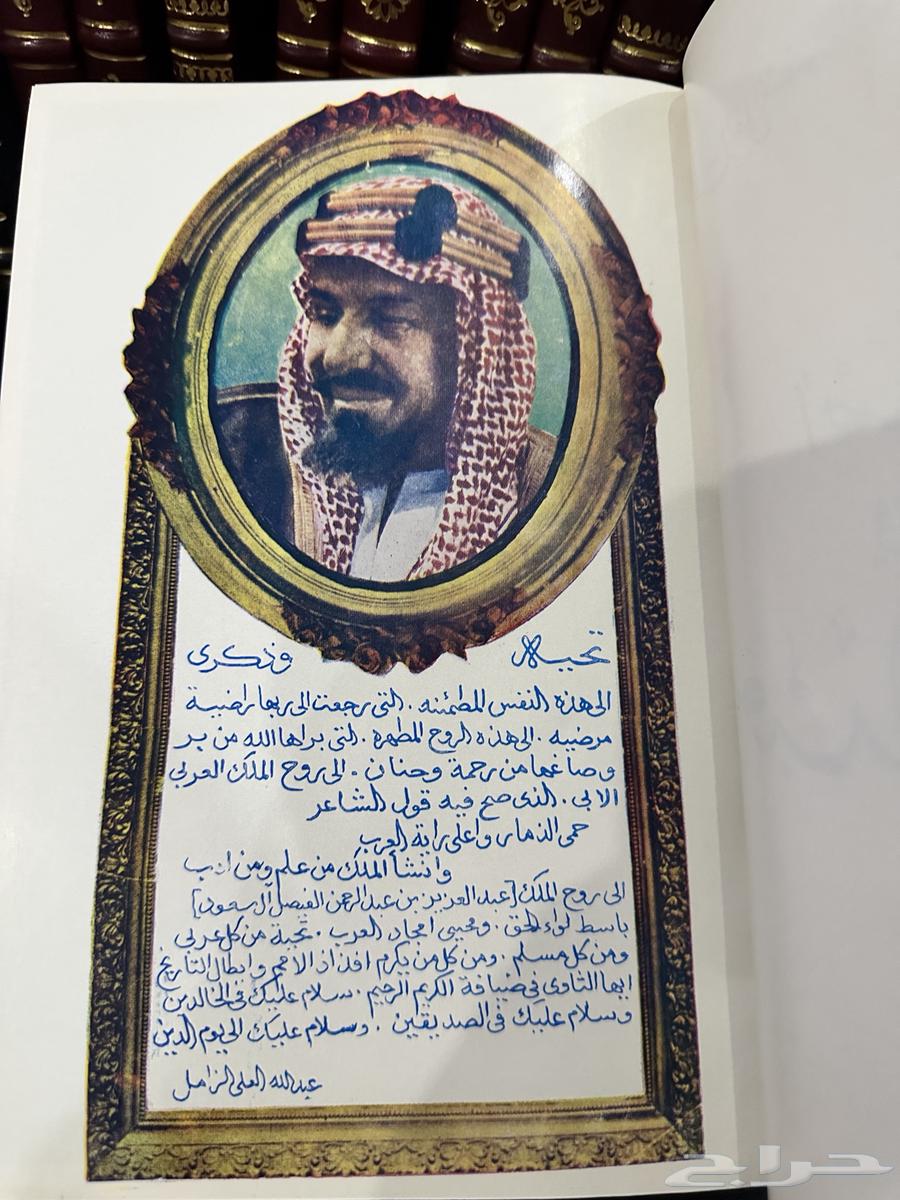 تحية وذكرى
الى هذه النفس المطمئنه . التى رجعت الى ربها راضية
مرضيه . الى هذه الروح المطهرة . التى براها الله من بر
وصاغها من رحمة وحنان . الى روح الملك العربى
الابى . الذى صح فيه قول الشاعر
حمى الذمار واعلى راية العرب
وانشأ الملك من علم ومن ادب
الى روح الملك [عبد العزيز بن عبد الرحمن الفيصل آل سعود]
باسط لواء الحق . ومحيى امجاد العرب . تحية من كل عربى
ومن كل مسلم . ومن كل من يكرم افذاذ الامم وابطال التاريخ
ايها الثاوى فى ضيافة الكريم الرحيم . سلام عليك فى الخالدين
وسلام عليك فى الصديقين . وسلام عليك الى يوم الدين
عبدالله العلى الزامل
حراج